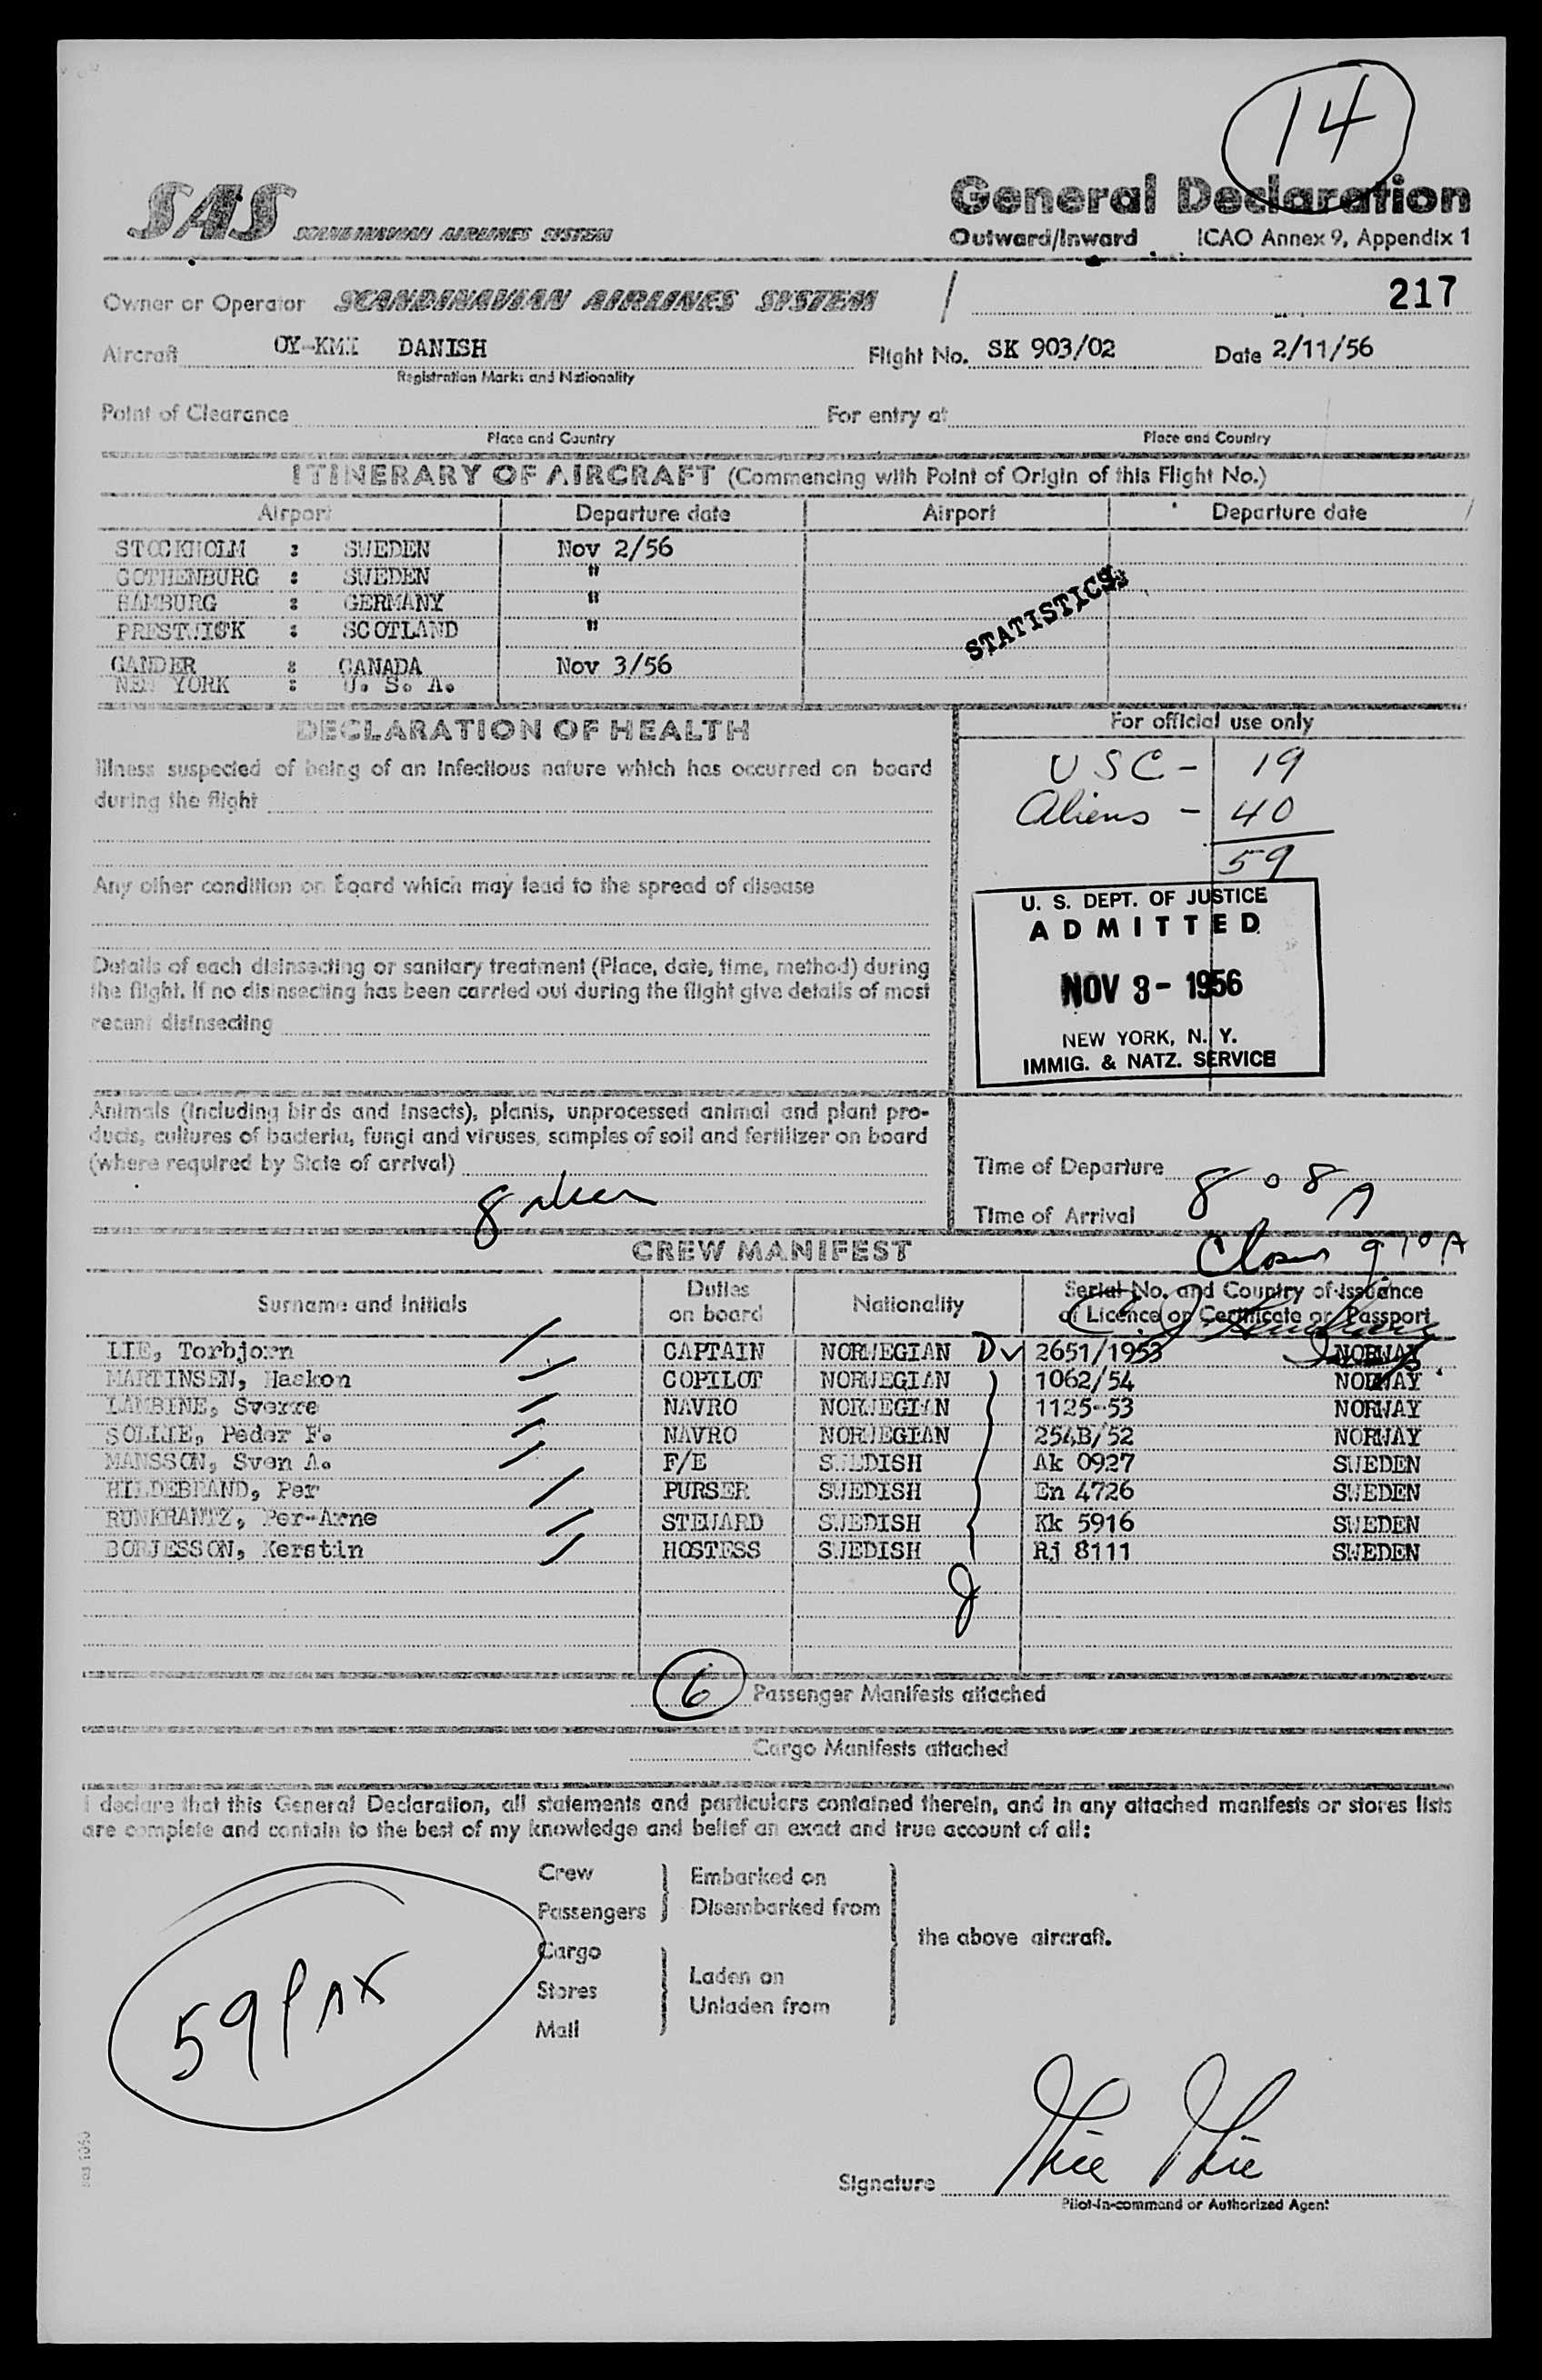 14
SAS SCANDINAVIAN AIRLINES SYSTEM
General Declaration
Outward/Inward ICAO Annex 9, Appendix 1
Owner or Operator SCANDINAVIAN AIRLINES SYSTEM 217
Aircraft OY-KMI DANISH Flight No. SK 903/02 Date 2/11/56
Registration Marks and Nationality
Point of Clearance For entry at
Place and Country Place and Country
ITINERARY OF AIRCRAFT (Commencing with Point of Origin of this Flight No.)
Airport Departure date Airport Departure date
STOCKHOLM : SWEDEN Nov 2/56
GOTHENBURG : SWEDEN "
HAMBURG : GERMANY "
PRESTWICK : SCOTLAND "
STATISTICS
GANDER : CANADA Nov 3/56
NEW YORK : U. S. A.
DECLARATION OF HEALTH
For official use only
Illness suspected of being of an infectious nature which has occurred on board
during the flight
USC - 19
Aliens - 40
59
Any other condition on board which may lead to the spread of disease
U. S. DEPT. OF JUSTICE
ADMITTED
NOV 3 - 1956
NEW YORK, N. Y.
IMMIG. & NATZ. SERVICE
Details of each disinsecting or sanitary treatment (Place, date, time, method) during
the flight. If no disinsecting has been carried out during the flight give details of most
recent disinsecting
Animals (including birds and insects), plants, unprocessed animal and plant pro-
ducts, cultures of bacteria, fungi and viruses, samples of soil and fertilizer on board
(where required by State of arrival)
Time of Departure
Time of Arrival 8 08 A
CREW MANIFEST
9 10 A
Surname and Initials Duties on board Nationality Serial No. and Country of Issuance of Licence or Certificate or Passport
LIE, Torbjorn CAPTAIN NORWEGIAN D 2651/1953 NORWAY
MARTINSEN, Haakon COPILOT NORWEGIAN 1062/54 NORWAY
LAMBINE, Sverre NAVRO NORWEGIAN 1125-53 NORWAY
SOLLIE, Peder F. NAVRO NORWEGIAN 254B/52 NORWAY
MANSSON, Sven A. F/E SWEDISH Ak 0927 SWEDEN
HILDEBRAND, Per PURSER SWEDISH En 4726 SWEDEN
RUNKRANTZ, Per-Arne STEWARD SWEDISH Kk 5916 SWEDEN
BORJESSON, Kerstin HOSTESS SWEDISH Rj 8111 SWEDEN
6 Passenger Manifests attached
Cargo Manifests attached
I declare that this General Declaration, all statements and particulars contained therein, and in any attached manifests or stores lists
are complete and contain to the best of my knowledge and belief an exact and true account of all:
Crew
Passengers
Embarked on
Disembarked from
Cargo
Stores
Mail
Laden on
Unladen from
the above aircraft.
59 PAX
Signature
Pilot-in-command or Authorized Agent